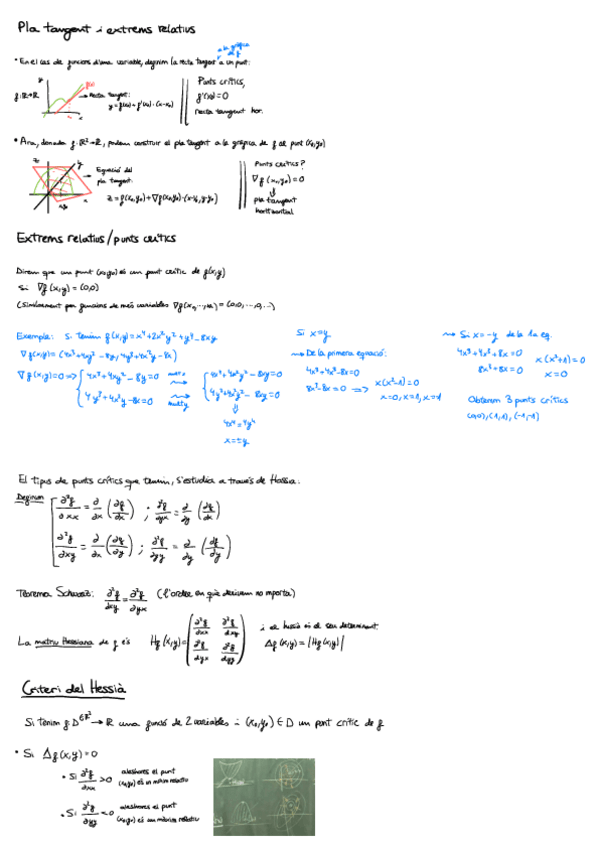 Pla tangent i extrems relatius
• En el cas de funcions d'una variable, definim la recta tangent a un punt:
a la gràfica de f
f: ℝ→ℝ
f(x)
→ Recta tangent:
y = f(x₀) + f'(x₀)·(x-x₀)
Punts crítics,
f'(x₀)=0
recta tangent hor.
• Ara, donada f: ℝ²→ℝ, podem construir el pla tangent a la gràfica de f al punt (x₀,y₀)
→ Equació del
pla tangent:
z = f(x₀,y₀) + ∇f(x₀,y₀)·(x-x₀, y-y₀)
Punts crítics?
∇f(x₀,y₀) = 0
⇓
pla tangent
horitzontal
Extrems relatius/punts crítics
Direm que un punt (x₀,y₀) és un punt crític de f(x,y)
si ∇f(x,y) = (0,0)
(similarment per funcions de més variables ∇f(x₁,...,xₙ) = (0,0,...,0,...)
Exemple: Si tenim f(x,y) = x⁴+2x²y²+y⁴-8xy
∇f(x,y) = (4x³+4xy²-8y, 4y³+4x²y-8x)
∇f(x,y)=0 =>
4x³+4xy²-8y=0
4y³+4x²y-8x=0
4x⁴+4x²y²-8xy=0
4y⁴+4x²y²-8xy=0
⇓
4x⁴=4y⁴
x=±y
Si x=y
→ De la primera equació:
4x³+4x³-8x=0
8x³-8x=0 => x(x²-1)=0
x=0, x=1, x=-1
→ Si x=-y de la 1a eq.
4x³+4x³+8x=0
8x³+8x=0
x(x²+1)=0
x=0
Obtenim 3 punts crítics
(0,0), (1,1), (-1,-1)
El tipus de punts crítics que tenim, s'estudia a través de Hessia:
Definim
∂²f/∂xx = ∂/∂x (∂f/∂x) ; ∂²f/∂yx = ∂/∂y (∂f/∂x)
∂²f/∂xy = ∂/∂x (∂f/∂y) ; ∂²f/∂yy = ∂/∂y (∂f/∂y)
Teorema Schwarz: ∂²f/∂xy = ∂²f/∂yx (l'ordre en què derivem no importa)
La matriu Hessiana de f és
Hf(x,y) = (∂²f/∂xx ∂²f/∂xy
∂²f/∂yx ∂²f/∂yy)
i el hessià és el seu determinant
Δf(x,y) = |Hf(x,y)|
Criteri del Hessià
Si tenim f: D∈ℝ² → ℝ una funció de 2 variables i (x₀,y₀) ∈ D un punt crític de f
• Si Δf(x,y)=0
• Si ∂²f/∂xx > 0 aleshores el punt
(x₀,y₀) és un mínim relatiu
• Si ∂²f/∂yy < 0 aleshores el punt
(x₀,y₀) és un màxim relatiu